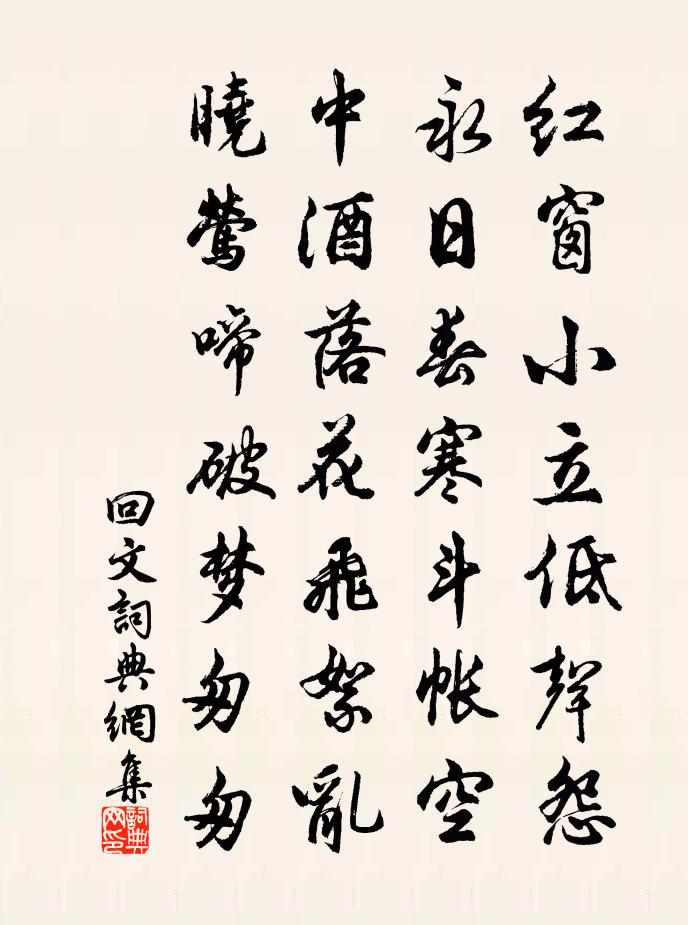 红窗小立低聲怨
永日春寒斗帐空
中酒落花飛絮亂
曉鶯啼破梦匆匆
回文詞典網集
詞典网印